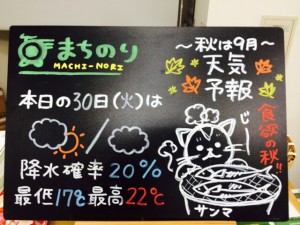 まちのり
MACHI-NORI
本日の30日(火)は
降水確率20%
最低17℃最高22℃
〜秋は9月〜
天気
予報
食欲の秋!!
じー
サンマ